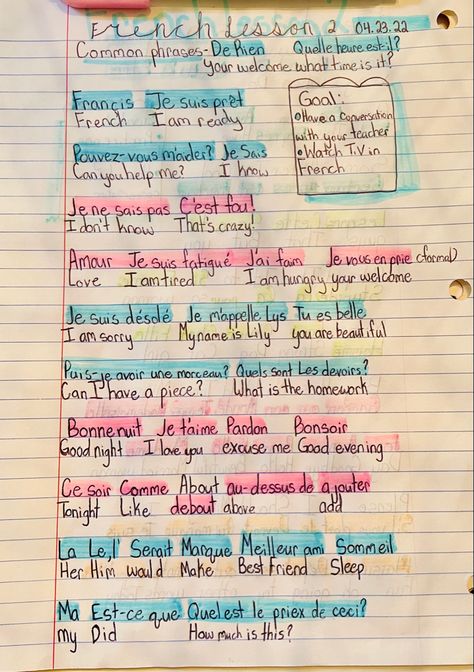 French Lesson 2 04.23.22
Common phrases- De Rien Quelle heure est-il?
Your welcome what time is it?
Francis Je suis prêt
French I am ready
Goal:
Have a conversation
with your teacher
Watch T.V in
French
Pouvez-vous m'aider? Je Sais
Can you help me? I know
Je ne sais pas C'est fou!
I don't know That's crazy!
Amour Je suis fatigué J'ai faim Je vous en prie (formal)
Love I am tired I am hungry your welcome
Je suis désolé Je m'appelle Lys Tu es belle
I am sorry My name is Lily you are beautiful
Puis-je avoir une morceau? Quels sont Les devoirs?
Can I have a piece? What is the homework
Bonne nuit Je t'aime Pardon Bonsoir
Good night I love you excuse me Good evening
Ce soir Comme About au-dessus de ajouter
Tonight Like debout above add
La Le,l' Serait Marque Meilleur ami Sommeil
Her Him would Make Best Friend Sleep
Ma Est-ce que Quel est le priex de ceci?
my Did How much is this?